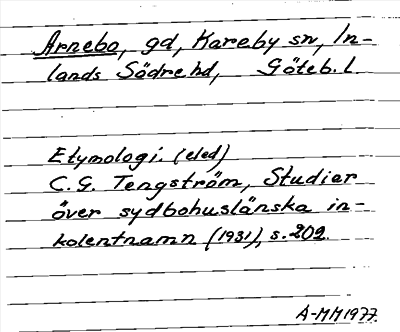 Arnebo, gd, Kareby sn, In-
lands Södre hd, Göteb. l.
Etymologi. (eled)
C. G. Tengström, Studier
över sydbohuslänska in-
kolentnamn (1931), s. 202.
A-MM1977.